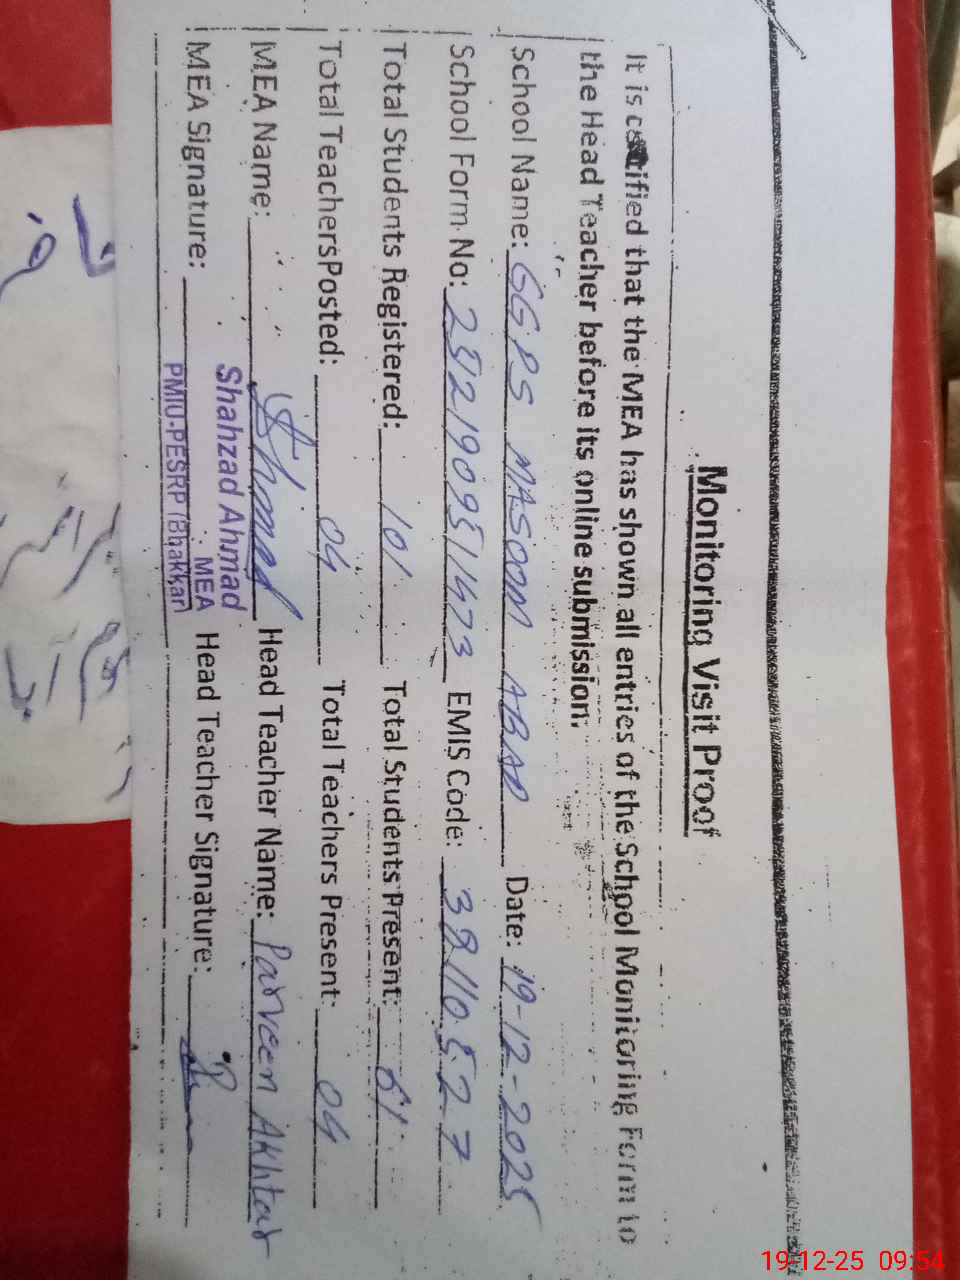 Monitoring Visit Proof
It is certified that the MEA has shown all entries of the School Monitoring Form to
the Head Teacher before its online submission.
School Name: GGPS MASOOM ABAD Date: 19-12-2025
School Form No: EMIS Code: 38110527
Total Students Registered: 101 Total Students Present: 61
Total TeachersPosted: 04 Total Teachers Present: 04
MEA Name: Head Teacher Name: Parveen Akhtar
MEA Signature: Head Teacher Signature:
Shahzad Ahmad
MEA
PMIU-PESRP (Bhakkar)
19-12-25 09:54